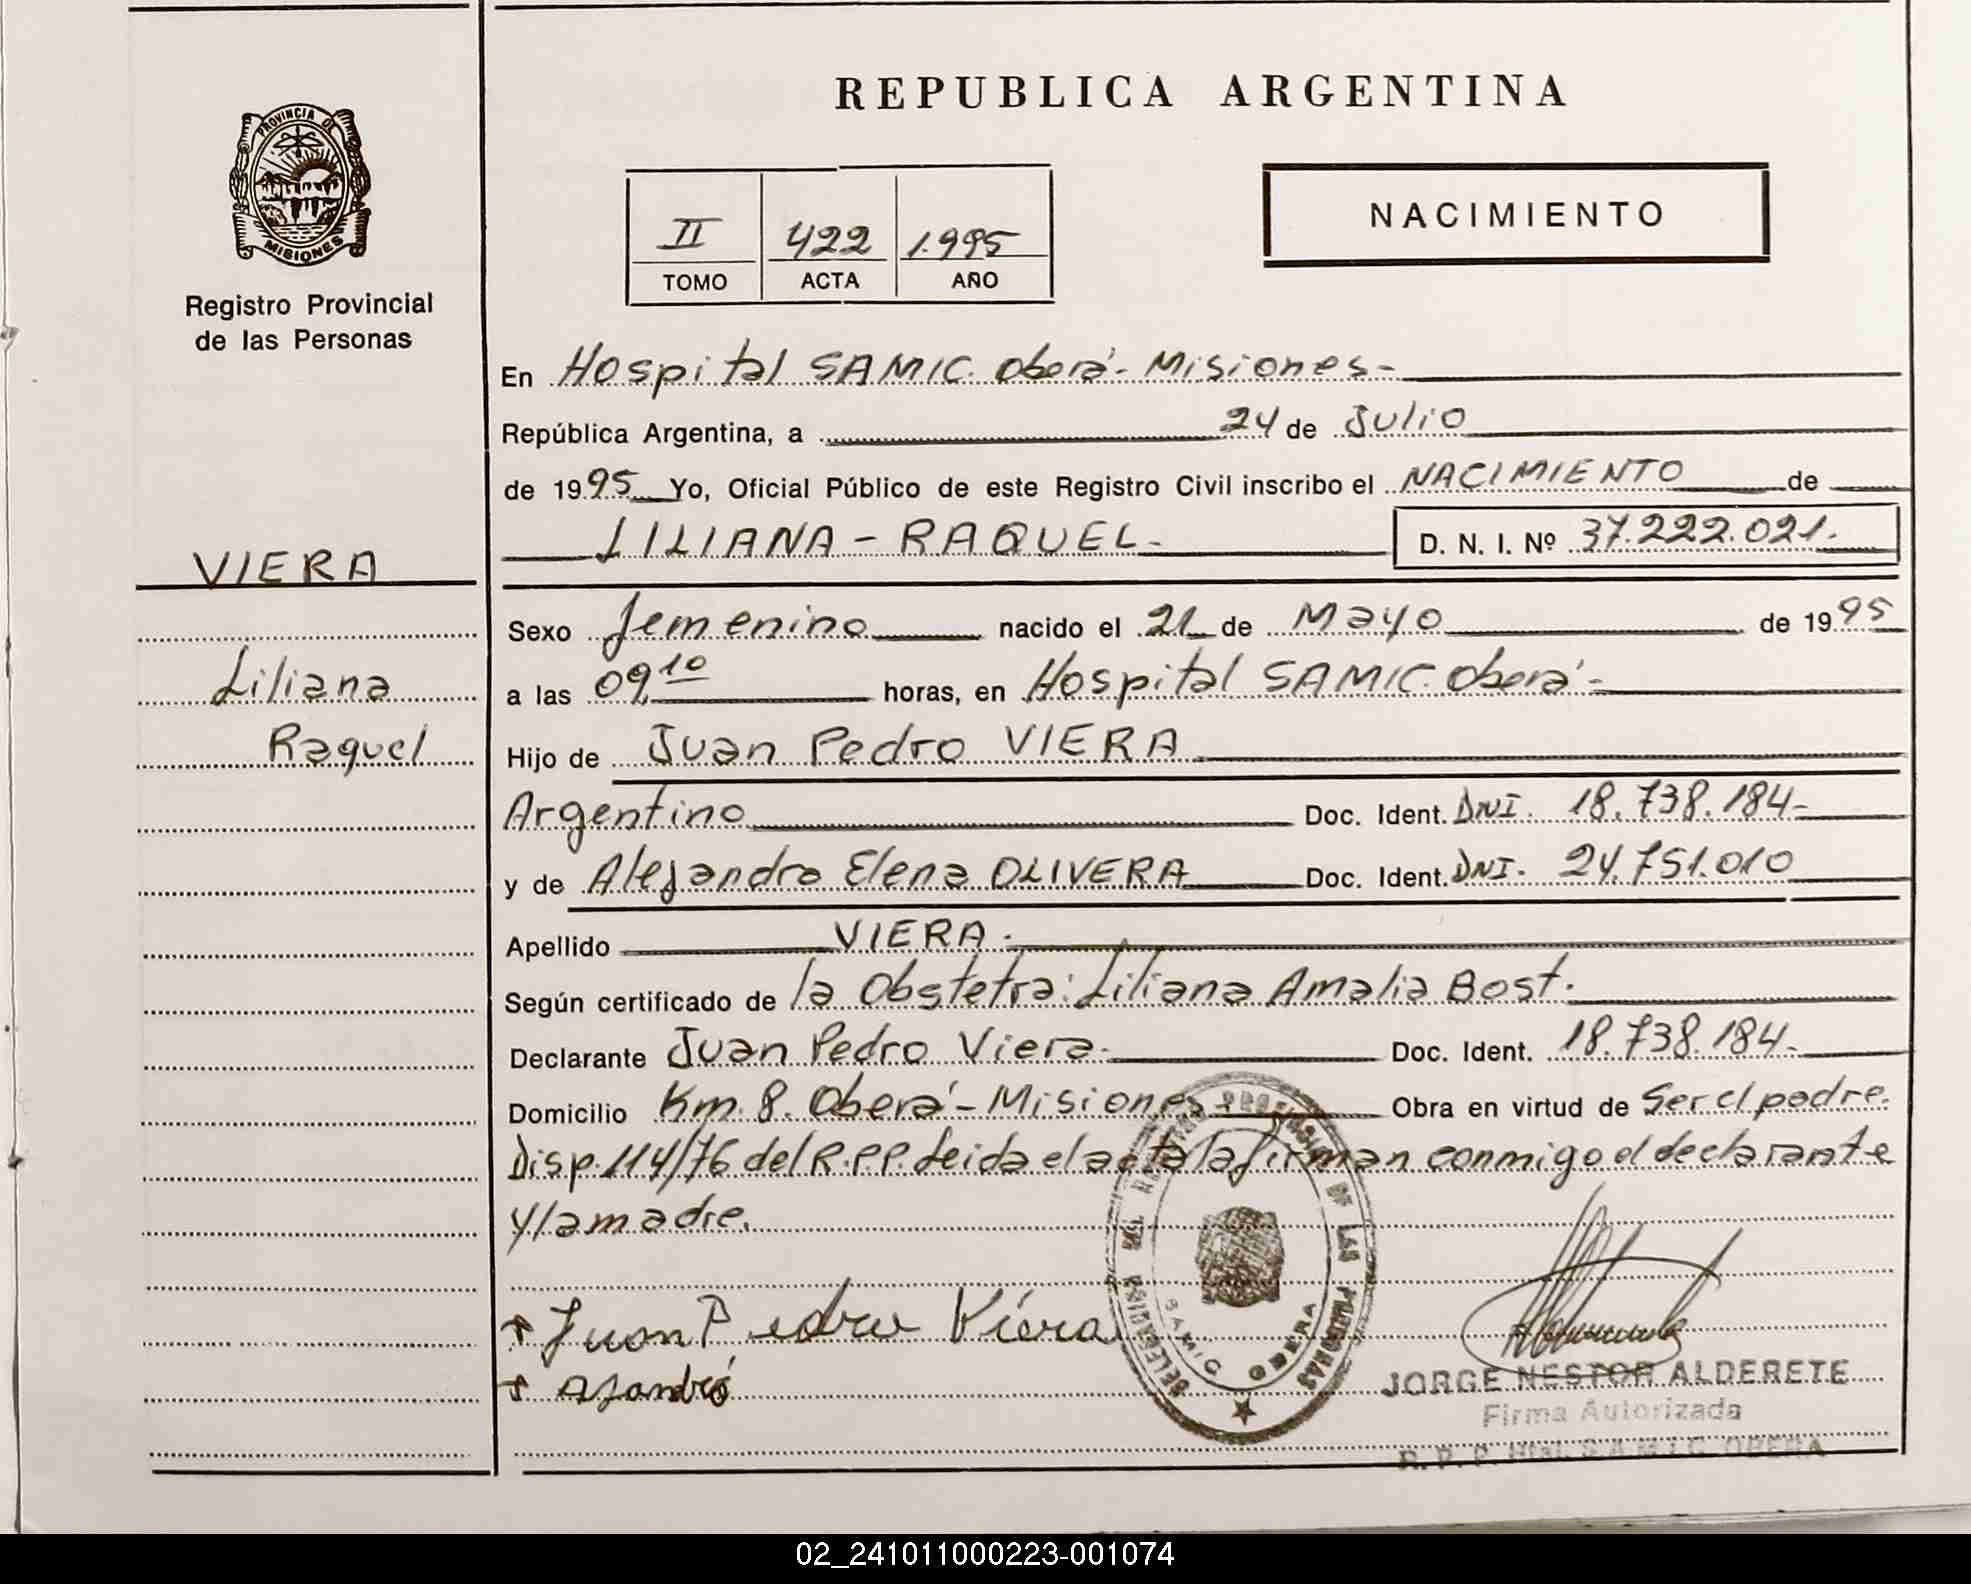 REPUBLICA ARGENTINA
PROVINCIA DE
MISIONES
Registro Provincial
de las Personas
NACIMIENTO
II 422 1.995
TOMO ACTA AÑO
En Hospital SAMIC. Oberá - Misiones -
República Argentina, a 24 de Julio
de 1995 Yo, Oficial Público de este Registro Civil inscribo el NACIMIENTO de
LILIANA - RAQUEL - D. N. I. Nº 37.222.021.
VIERA
Liliana
Raquel
Sexo femenino nacido el 21 de Mayo de 1995
a las 09,10 horas, en Hospital SAMIC. Oberá -
Hijo de Juan Pedro VIERA
Argentino Doc. Ident. DNI. 18.738.184-
y de Alejandra Elena OLIVERA Doc. Ident. DNI. 24.751.010
Apellido VIERA.
Según certificado de la Obstetra: Liliana Amalia Bost.
Declarante Juan Pedro Viera. Doc. Ident. 18.738.184-
Domicilio Km. 8. Oberá - Misiones - Obra en virtud de Ser el padre.
Disp. 114/76 del R.P.P. Leida el acta la firman conmigo el declarante
y la madre.
Juan Pedro Viera
DELEGACION DEL REGISTRO PROVINCIAL DE LAS PERSONAS
SAMIC OBERA
JORGE NESTOR ALDERETE
Firma Autorizada
R. P. P. Htal. S.A.M.I.C. OBERA
02_241011000223-001074